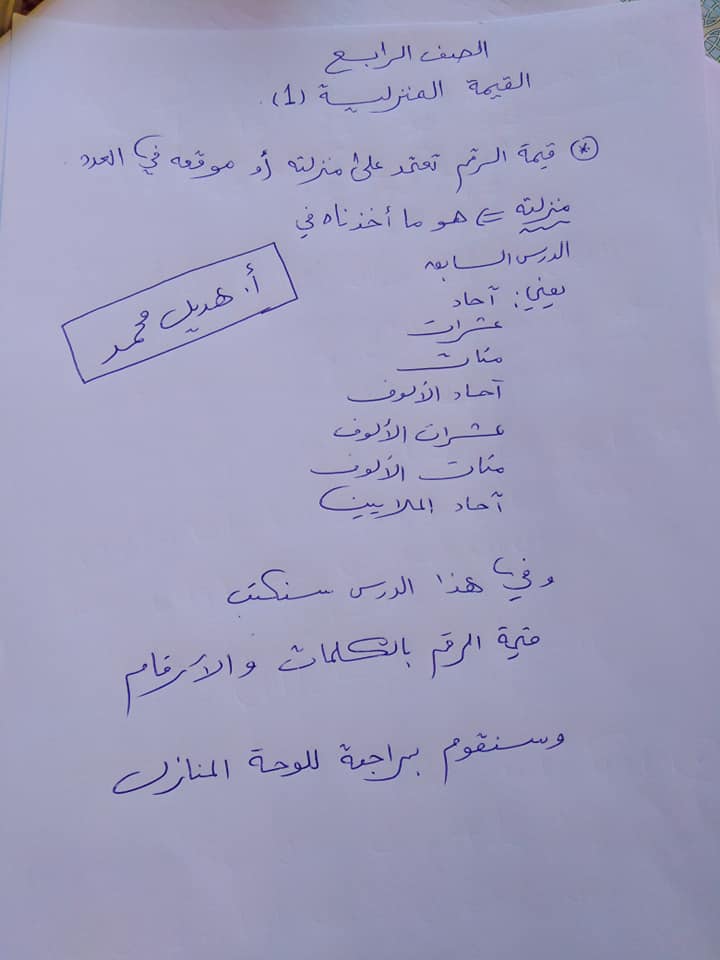 الصف الرابع
القيمة المنزلية (1).
* قيمة الرقم تعتمد على منزلته أو موقعه في العدد.
منزلته ⇐ هو ما أخذناه في
الدرس السابق
أ. هديل محمد
يعني: آحاد
عشرات
مئات
آحاد الألوف
عشرات الألوف
مئات الألوف
آحاد الملايين
وفي هذا الدرس سنكتب
قيمة الرقم بالكلمات والأرقام
وسنقوم بمراجعة للوحة المنازل